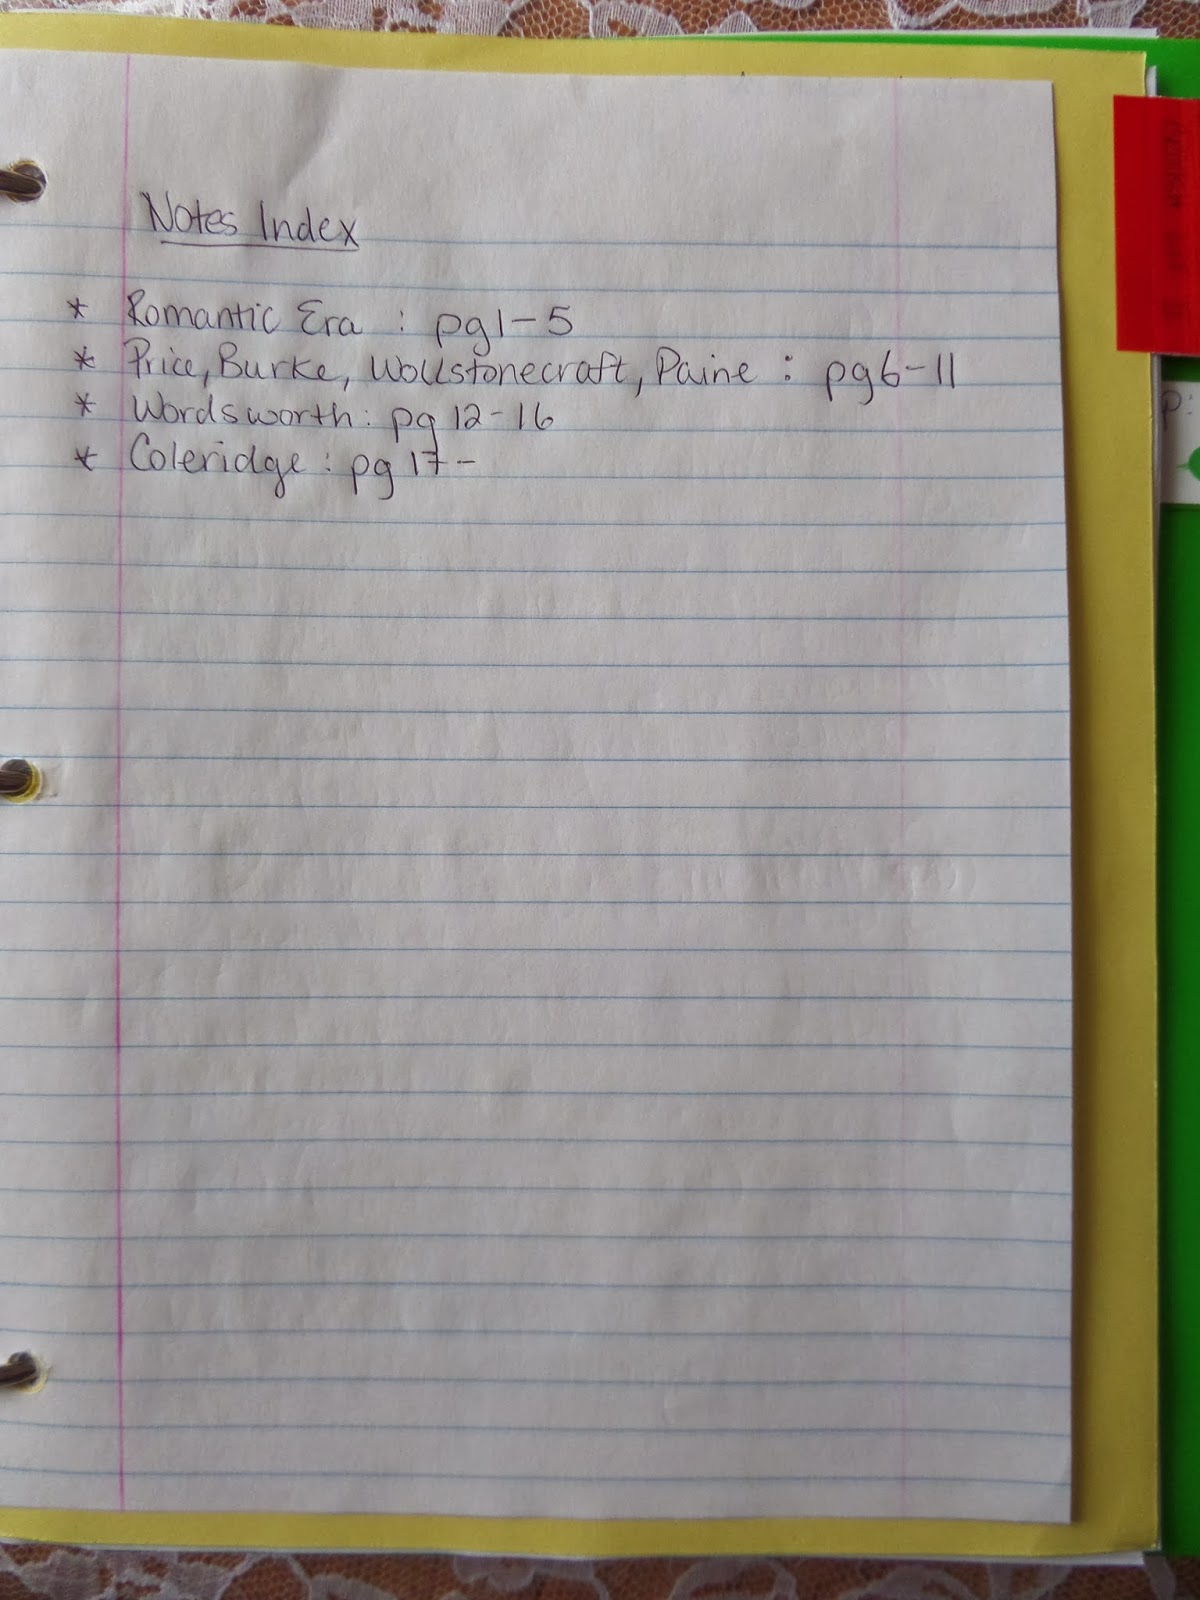 Notes Index
* Romantic Era : pg 1-5
* Price, Burke, Wollstonecraft, Paine : pg 6-11
* Wordsworth : pg 12-16
* Coleridge : pg 17-
p: